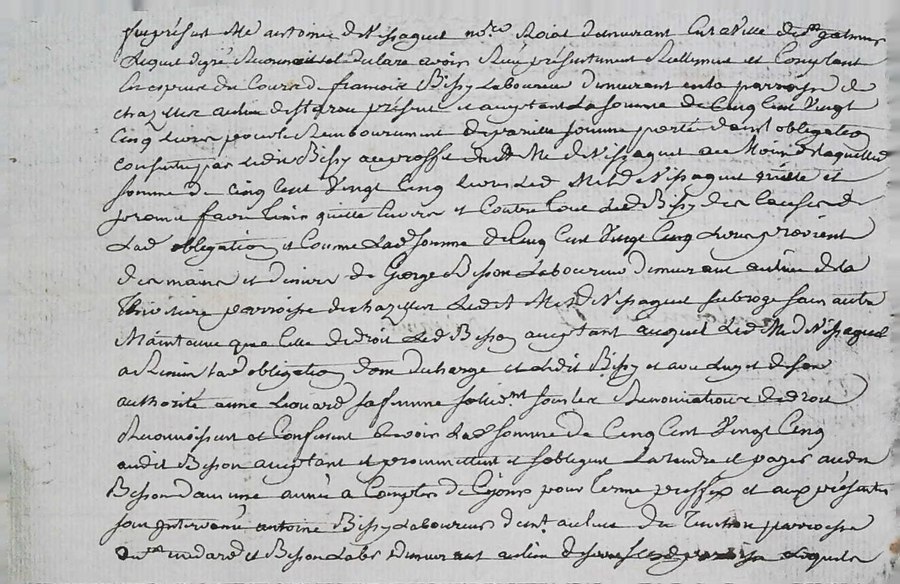 fut présent Me antoine de Vissaguet nore Roial demeurant en la Ville de St galmier
Lequel de gré Reconnoit et declare avoir Reçu présentement Rellement et Comptant
En especes du Cours de françois Bissy Laboureur demeurant en la parroisse de
chazelles au lieu de présent et aceptant La somme de Cinq Cent Vingt
Cinq Livres pour le Remboursement de pareille somme porté dans l obligation
consentie par Ledit Bissy au proffit dudt Me de Vissaguet au Moien de laquelle
somme de cinq Cent Vingt Cinq livres Led Me de Vissaguet quitte et
promet faire tenir quitte Envers et Contre tous Led Bissy des causes de
Lad obligation et Comme Lad somme de Cinq Cent Vingt Cinq Livres provient
des mains et deniers de George Bisson Laboureur demeurant au lieu de la
Thivoliere parroisse de chazelles Ledt Me de Vissaguet subroge sans autre
Maintenue que celle de droit Led Bisson aceptant auquel Led Me de Vissaguet
a Remis Lad obligation dont decharge et Ledit Bissy et avec Luy et de son
authorité anne Leonard sa femme solidemt sous les Renonciations de droit
Reconnoissent et Confessent devoir Lad somme de Cinq Cent Vingt Cinq
audit Bisson aceptant et promettent et sobligent La rendre et payer audit
Bisson dans une année a Compter de Ce jour pour terme preffix et aux présentes
sont Intervenu antoine Bissy Laboureur demt au lieu du parroisse
de St medard et Bisson Labr demeurant au lieu de Lesquels